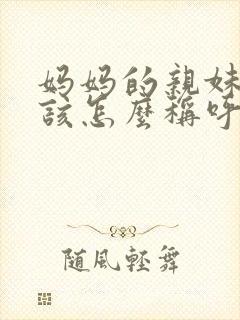 妈妈的親妹
該怎麼稱呼
随風輕舞